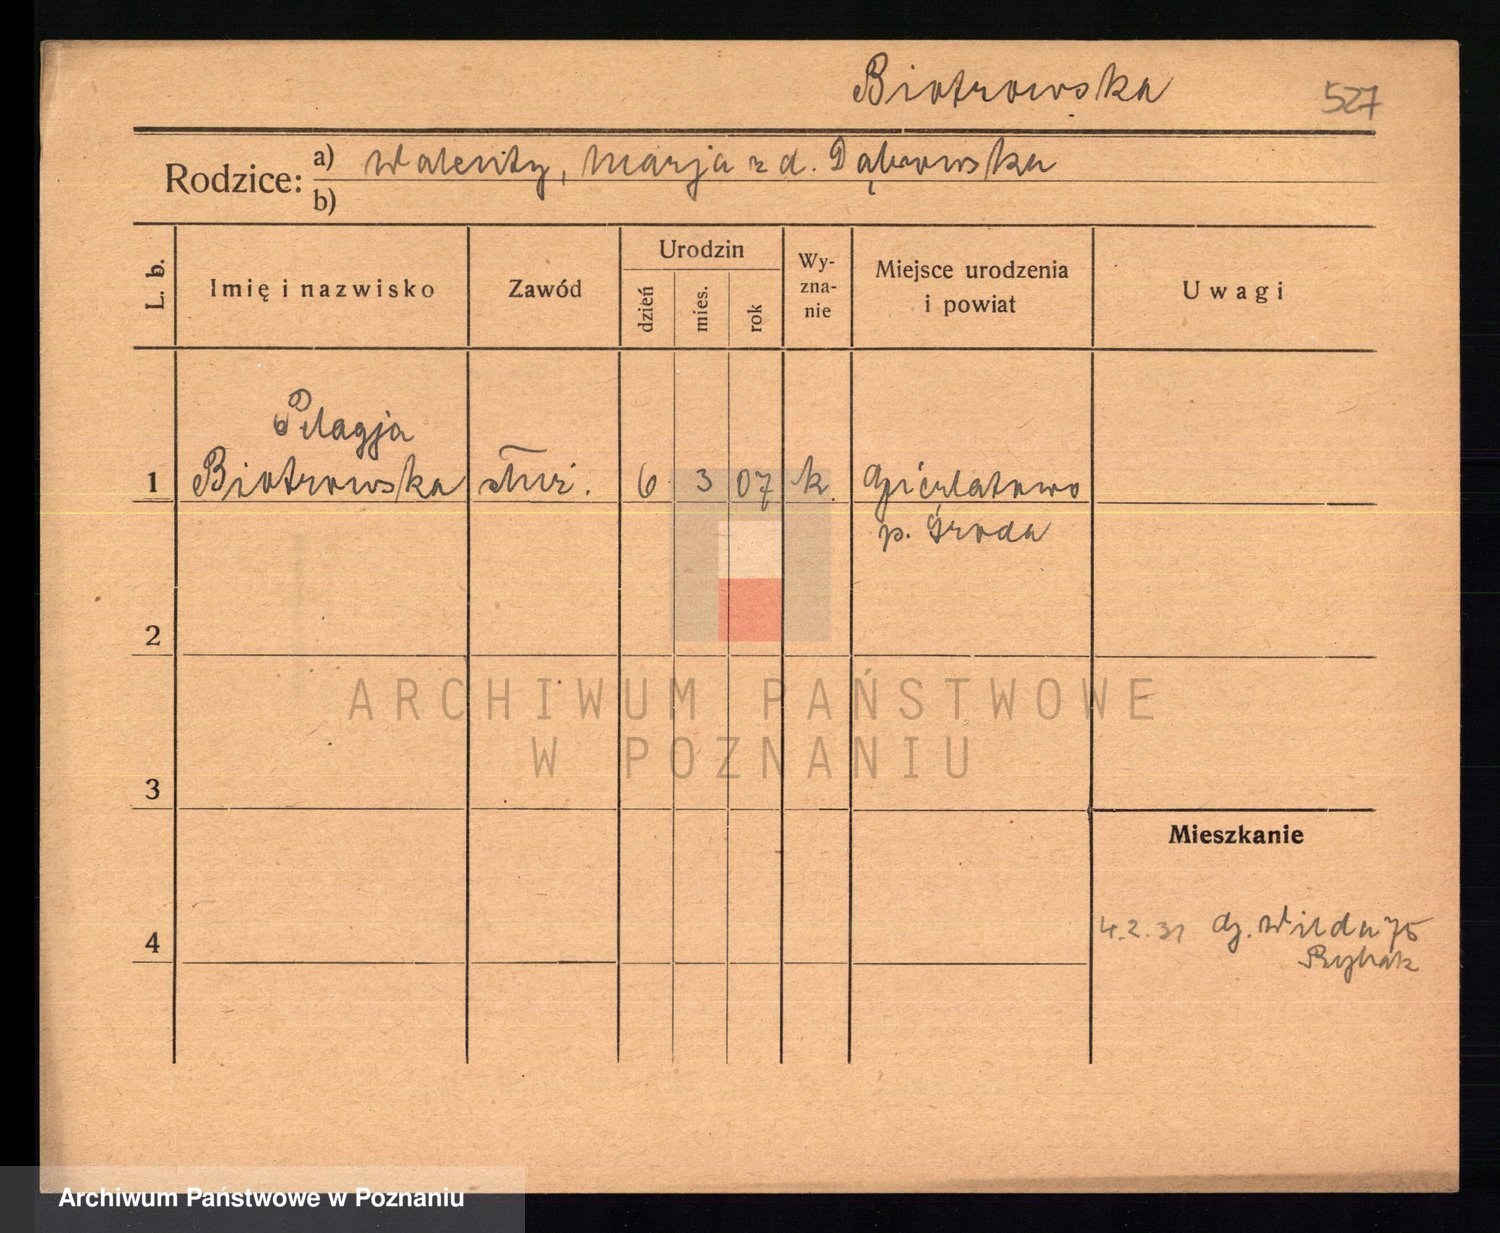 Biotrowska 527
Rodzice: a) Walenty, Marja z d. Dąbrowska
b)
L. b. Imię i nazwisko Zawód Urodzin dzień mies. rok Wy-zna-nie Miejsce urodzenia i powiat Uwagi
Pelagja
1 Biotrowska służ. 6 3 07 k.
p. Środa
2
ARCHIWUM PAŃSTWOWE
W POZNANIU
3
Mieszkanie
4 4.2.31 g. Wilda 75
Rybak
Archiwum Państwowe w Poznaniu